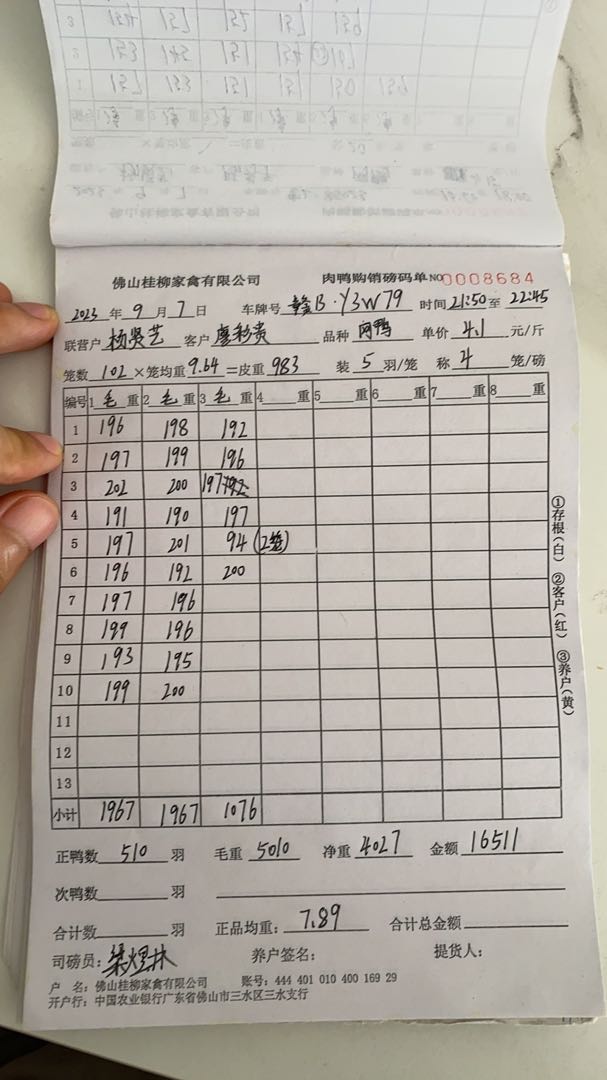 佛山桂柳家禽有限公司 肉鸭购销磅码单 NO 0008684
2023 年 9 月 7 日 车牌号 赣B·Y3W79 时间 21:50 至 22:45
联营户 杨贤艺 客户 廖彩贵 品种 肉鸭 单价 4.1 元/斤
笼数 102 ×笼均重 9.64 =皮重 983 装 5 羽/笼 称 4 笼/磅
编号 1 毛 重 2 毛 重 3 毛 重 4 重 5 重 6 重 7 重 8 重
1 196 198 192
2 197 199 196
3 202 200 197
4 191 190 197
5 197 201 94 (2笼)
6 196 192 200
7 197 196
8 199 196
9 193 195
10 199 200
11
12
13
小计 1967 1967 1076
①存根(白) ②客户(红) ③养户(黄)
正鸭数 510 羽 毛重 5010 净重 4027 金额 16511
次鸭数 羽
合计数 羽 正品均重: 7.89 合计总金额
司磅员: 梁煜林 养户签名: 提货人:
户 名: 佛山桂柳家禽有限公司 账号: 444 401 010 400 169 29
开户行: 中国农业银行广东省佛山市三水区三水支行